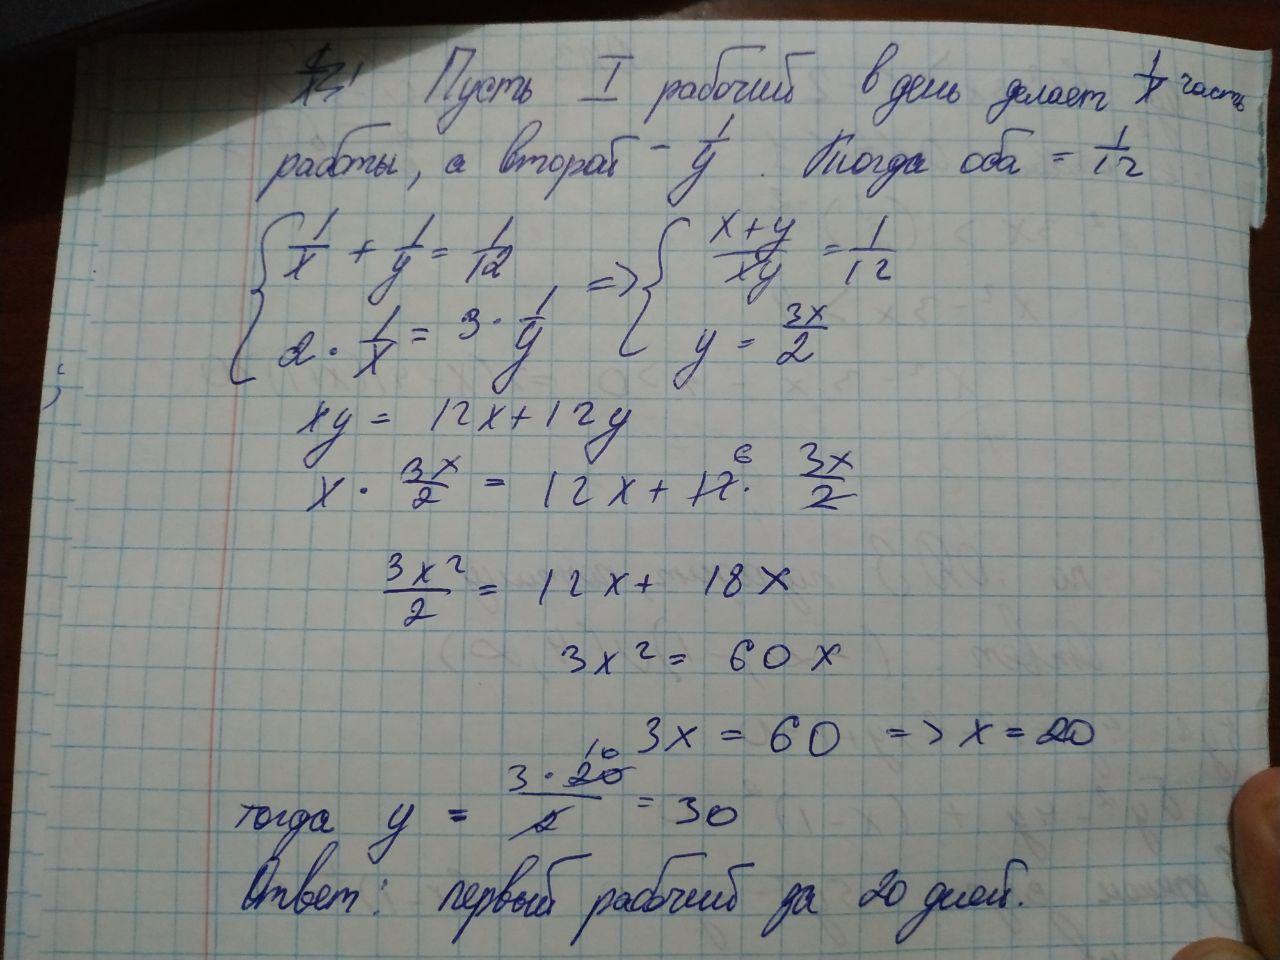 Пусть I рабочий в день делает 1/x часть
работы, а второй - 1/y. Тогда оба = 1/12
{ 1/x + 1/y = 1/12 => { (x+y)/xy = 1/12
2 · 1/x = 3 · 1/y y = 3x/2
xy = 12x + 12y
x · 3x/2 = 12x + 12 · 3x/2 6
3x²/2 = 12x + 18x
3x² = 60x
3x = 60 => x = 20
тогда y = 3 · 20/2 = 30 10
Ответ: первый рабочий за 20 дней.